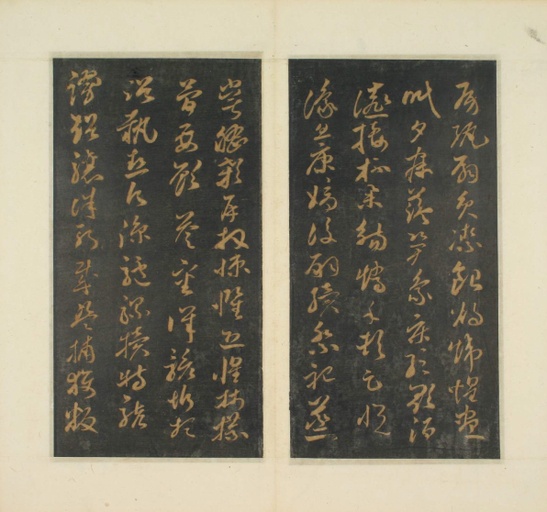 房紈扇圓潔銀燭煒煌晝
眠夕寐藍笋象床弦歌酒
讌接杯舉觴矯手頓足悅
豫且康嫡後嗣續祭祀蒸
嘗稽顙再拜悚懼恐惶牋牒
簡要顧答審詳骸垢想
浴執熱願涼驢騾犢特駭
躍超驤誅斬賊盜捕獲叛